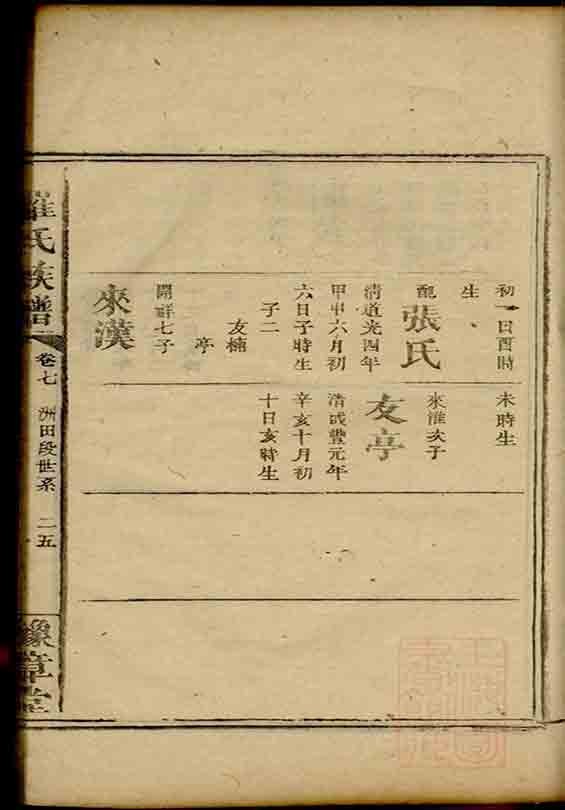 初一日酉時
生
配張氏
清道光四年
甲申六月初
六日子時生
子二
友楠
亭
開祥七子
來漢
未時生
來淮次子
友亭
清咸豐元年
辛亥十月初
十日亥時生
羅氏族譜
卷七
洲田段世系
二五
豫章堂